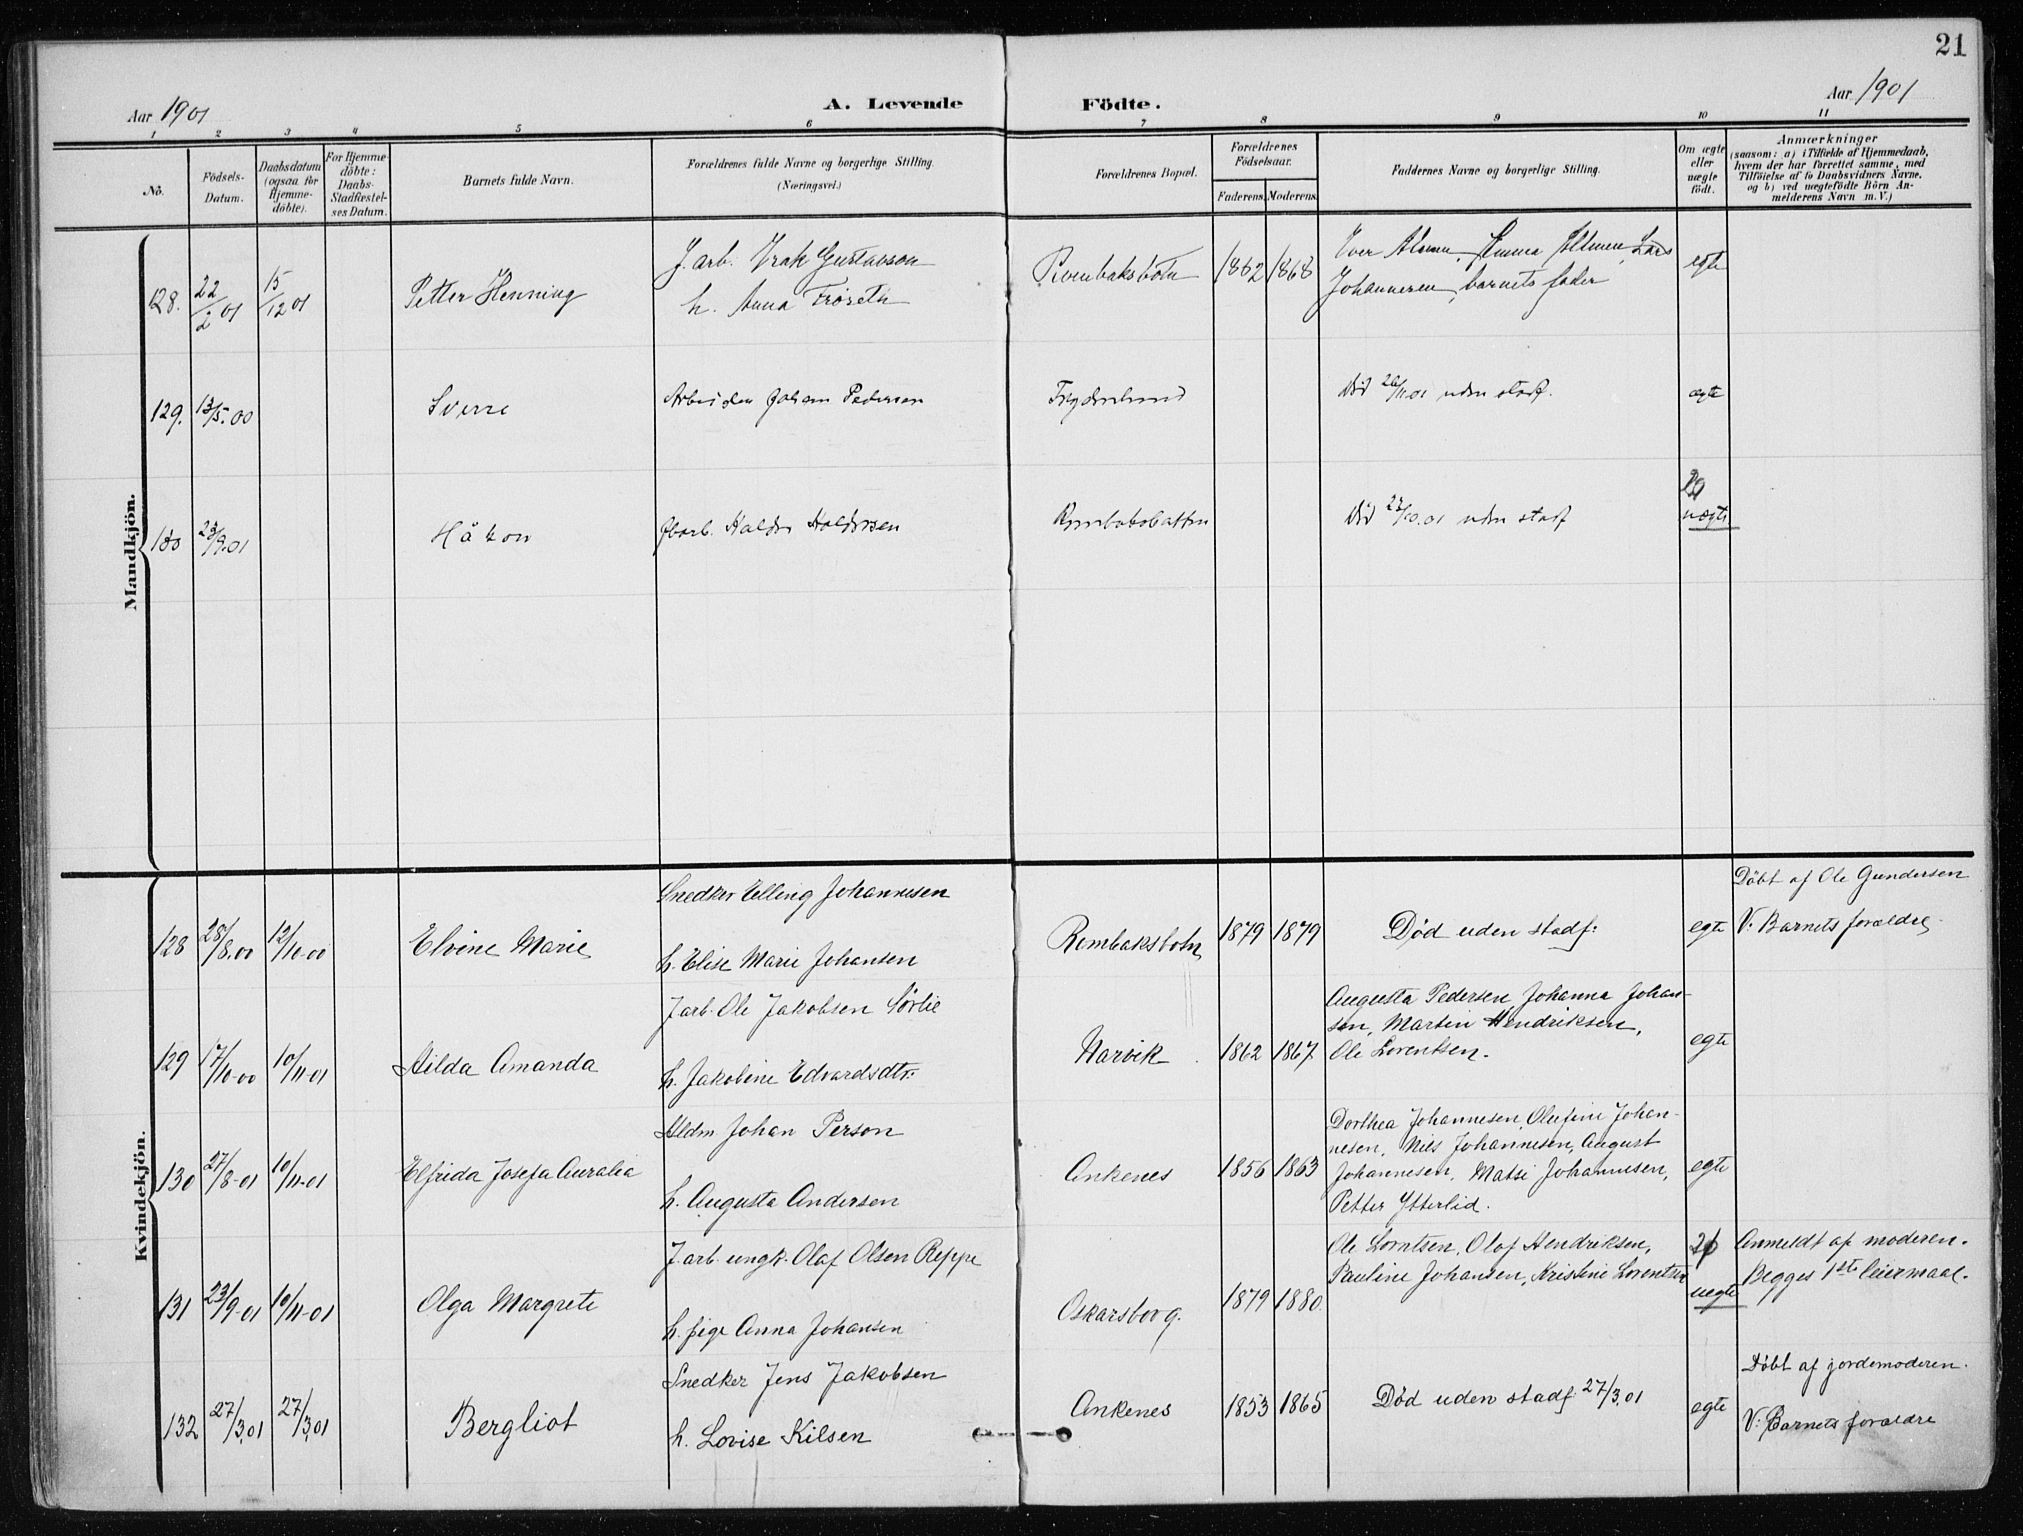 21
Aar 1901
A. Levende Födte.
Aar 1901
1 2 3 4 5 6 7 8 9 10 11
No.
Födsels-
Datum.
Daabsdatum
(ogsaa for
Hjemme-
döbte).
For Hjemme-
döbte:
Daabs-
Stadfæstel-
ses Datum.
Barnets fulde Navn.
Forældrenes fulde Navne og borgerlige Stilling.
(Næringsvei.)
Forældrenes Bopæl.
Forældrenes
Födselsaar.
Faderens. Moderens.
Faddernes Navne og borgerlige Stilling.
Om ægte
eller
uægte
födt.
Anmærkninger
(saasom: a) i Tilfælde af Hjemmedaab,
hvem der har forrettet samme, med
Tilföielse af to Daabsvidners Navne.
og b) ved uægtefödte Börn An-
melderens Navn m. V.)
Mandkjön.
128. 22/2 01 15/12 01 Petter Henning
J. arb. Gustavson
h. Anna
1862 1868
Iver
Johannesen, barnets fader
egte
129. 13/5.00 Sverre
Arbeider Johan Pedersen
Frydenlund
Død 01 uden stadf.
ægte
130 23/9.01 Håkon
Halder Haldersen
Død 10.01 uden stadf
uægte
Kvindekjön.
128 28/8.00 12/10-00 Elvine Marie
Snedker Elling Johannesen
h. Elise Marie Johansen
Rombaksbotn 1879 1879
Død uden stadf:
egte
Döbt af Ole Gundersen
V: Barnets forældre
129 17/10-00 10/11-01 Hilda Amanda
J arb. Ole Jakobsen Sørlie
h. Jakobine Edvardsdtr:
Narvik 1862 1867
Augusta Pedersen, Johanna Johan-
sen, Martin Hendriksen,
Ole Lorentsen.
egte
130 27/8-01 10/11-01 Elfrida Josefa Auralia
Hldm Johan Person
h. Augusta Andersen
Ankenes 1856 1863
Dorthea Johannesen, Olufine Johan-
nesen, Nils Johannesen, August
Johannesen, Matsi Johannesen,
Petter Ytterlid.
egte
131 23/9-01 10/11-01 Olga Margrete
J arb. ungk. Olaf Olsen Reppe
h. pige Anna Johansen
Oskarsborg. 1879 1880
Ole Lorntsen, Olof Hendriksen,
Pauline Johansen, Kristine Lorentsen
uegte
Anmeldt af moderen.
Begges 1ste leiermaal.
132 27/3.01 27/3.01 Bergliot
Snedker Jens Jakobsen
h. Lovise Kilsen
Ankenes 1853 1865
Død uden stadf: 27/3.01
egte
Döbt af jordemoderen.
V: Barnets forældre